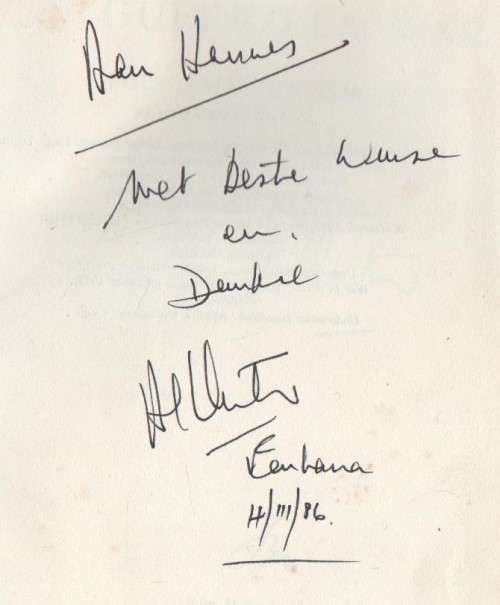 Aan Hannes
Met beste wense
en.
Dankie
Al Venter
Eenhana
4/III/86.